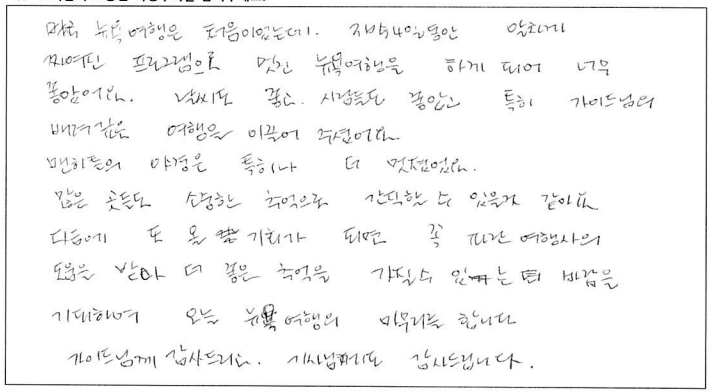 미국 뉴욕 여행은 처음이었는데. 3박4일동안 알차게
짜여진 프로그램으로 멋진 뉴욕여행을 하게 되어 너무
좋았어요. 날씨도 좋고 사람들도 좋았고 특히 가이드님의
배려깊은 여행을 이끌어 주셨어요.
맨하튼의 야경은 특히나 더 멋졌었요.
많은 곳들도 소중한 추억으로 간직할 수 있을거 같아요
다음에 또 올 기회가 되면 꼭 여행사의
도움을 받아 더 좋은 추억을 가질수 있는 바람을
기대하며 오늘 뉴욕여행의 마무리를 합니다
가이드님께 감사드리고. 기사님께도 감사드립니다.